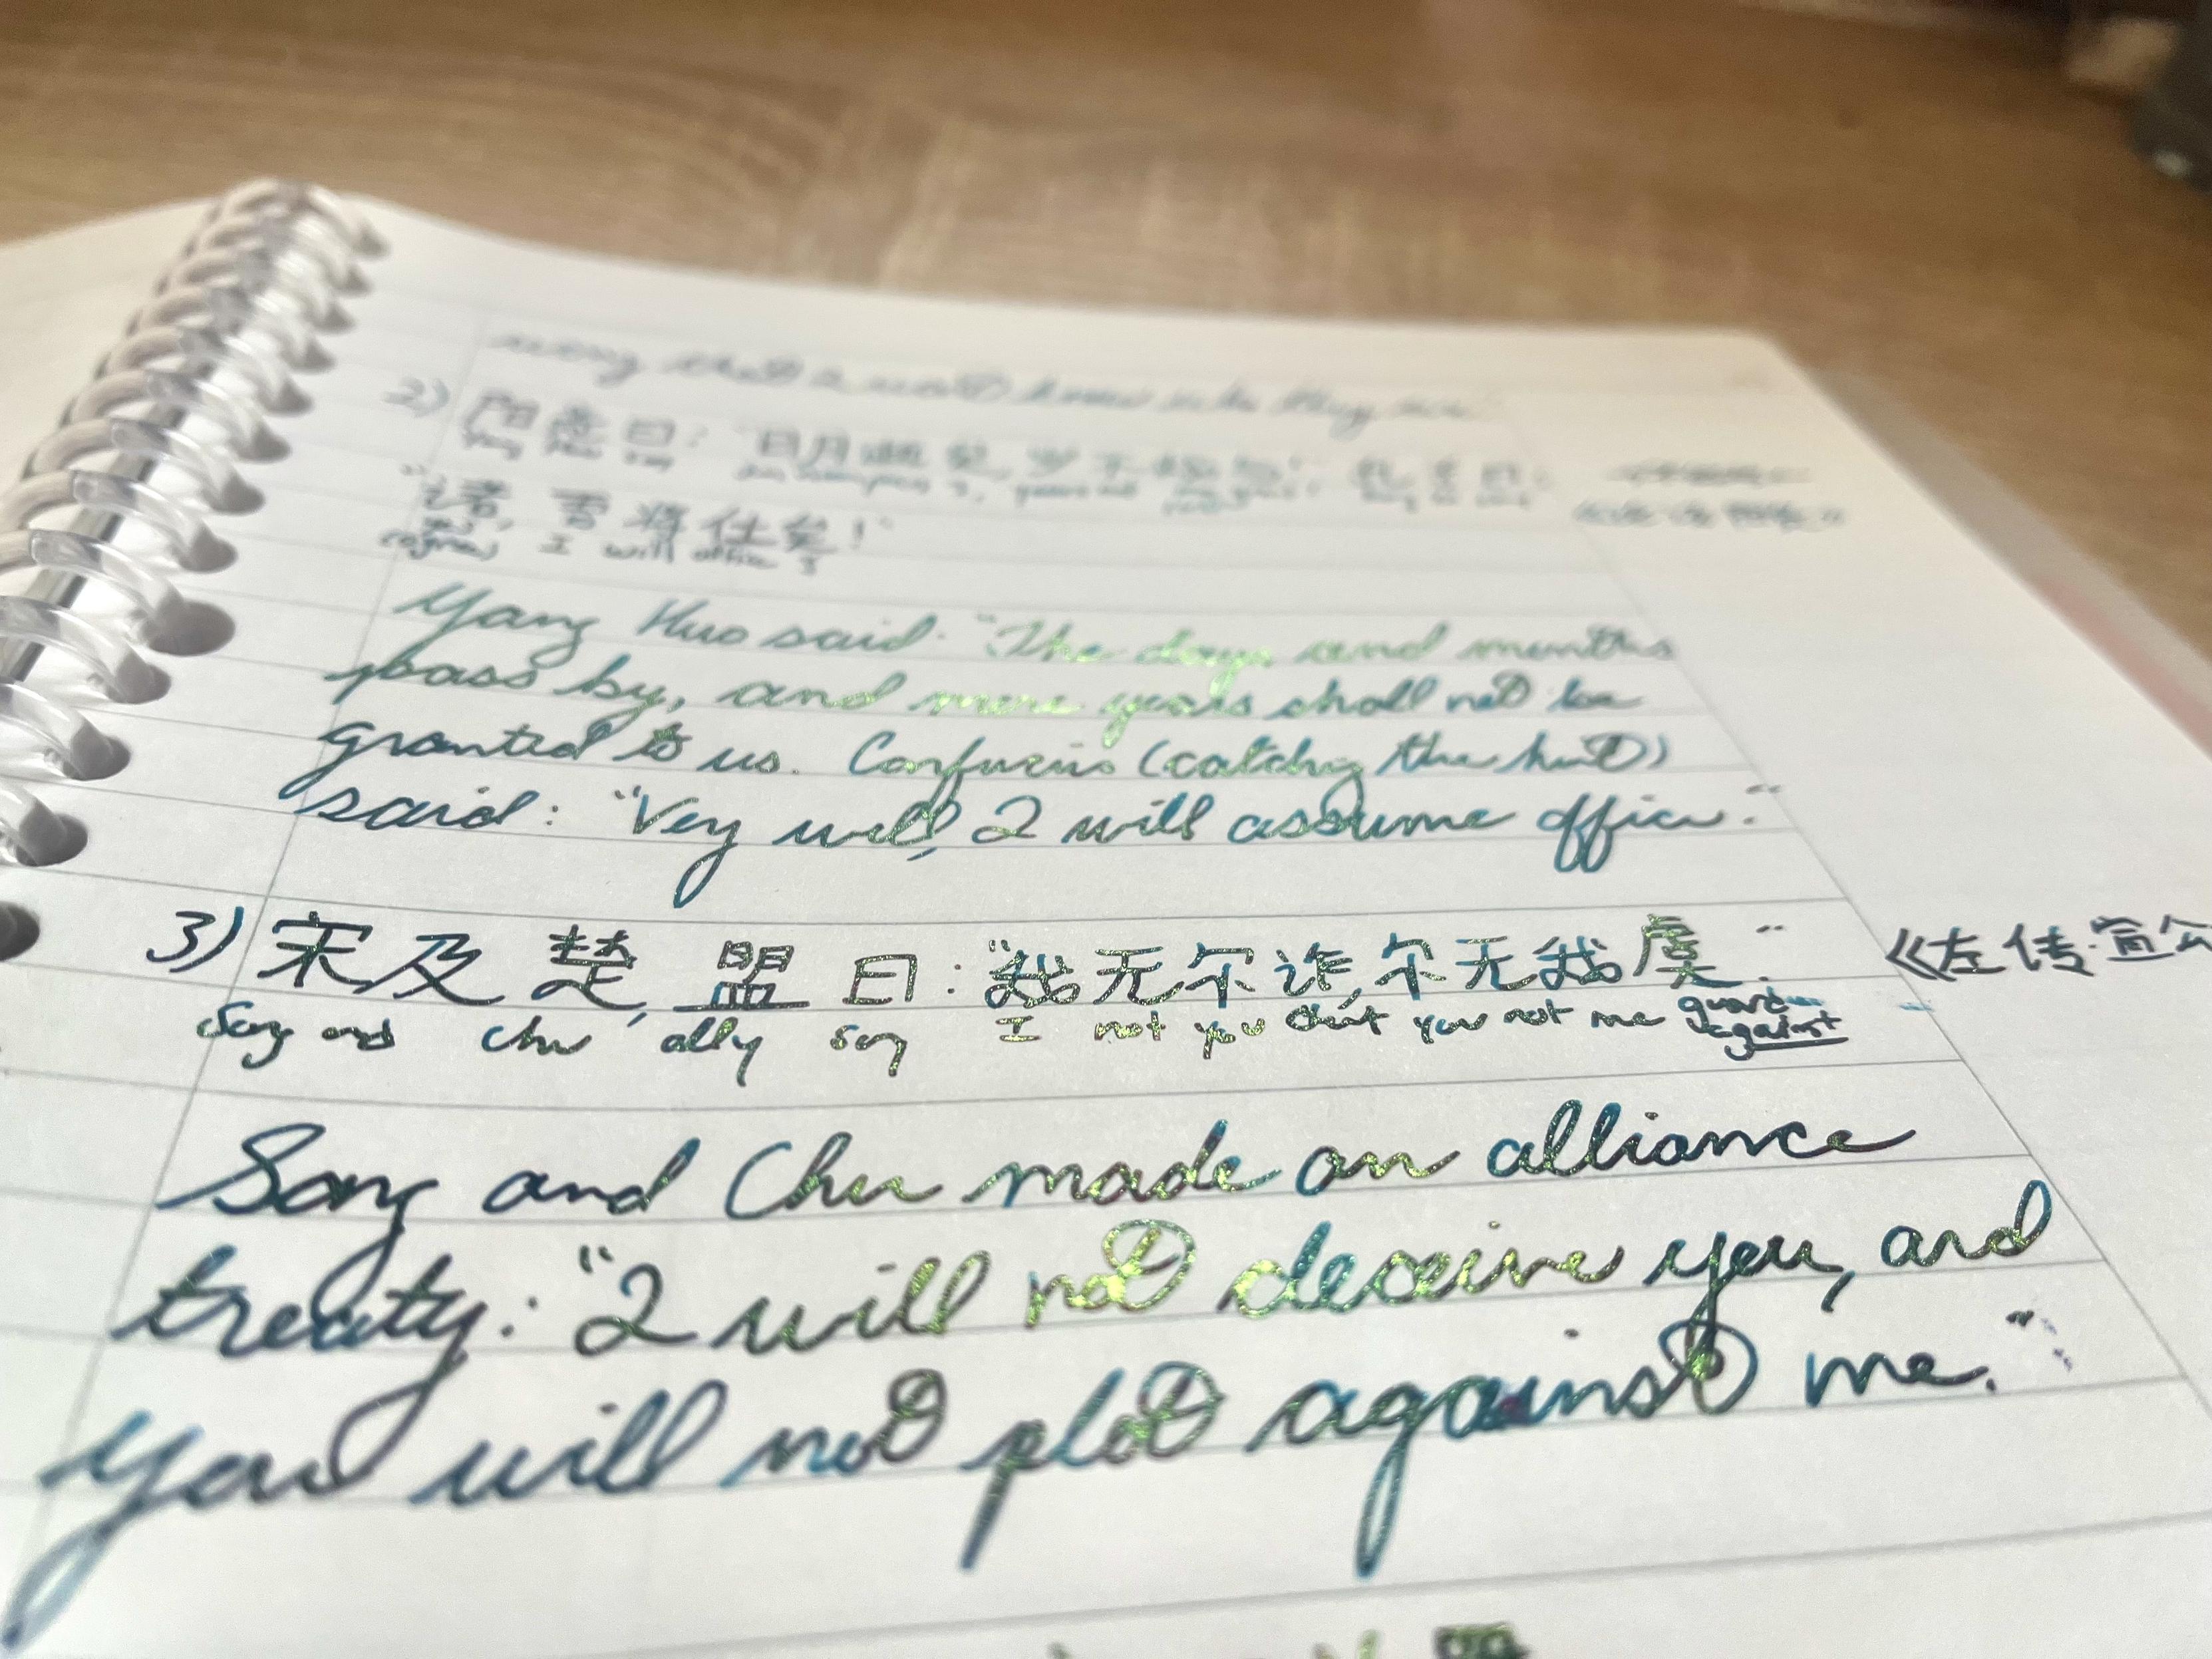 2) 阳货曰: "日月逝矣, 岁不我与!" 孔子曰:
"诺, 吾将仕矣!"
I will office
Yang Huo said: "The days and months
pass by, and more years shall not be
granted to us. Confucius (catchg the hint)
said: "Very well, I will assume office."
3) 宋及楚, 盟曰: "我无尔诈, 尔无我虞." 《左传·宣公
Song and Chu, ally say I not you cheat you not me guard against
Song and Chu made an alliance
treaty: "I will not deceive you, and
you will not plot against me."